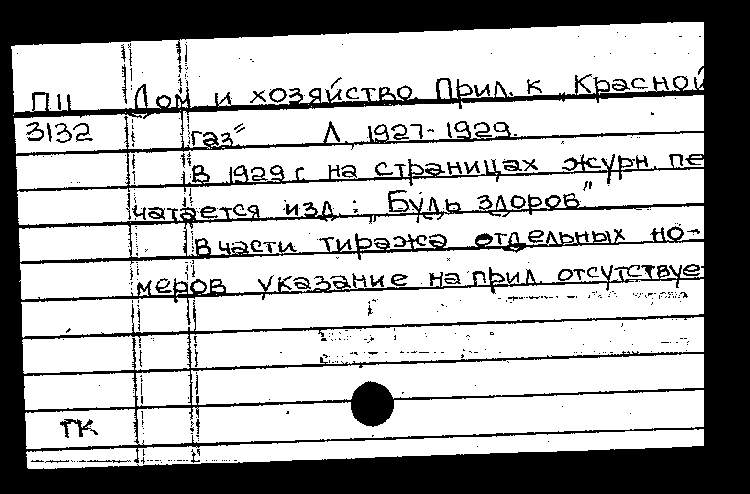 П11 Дом и хозяйство. Прил. к „Красной
3132 газ“ Л., 1927-1929.
В 1929 г. на страницах журн. пе
чатается изд.: „Будь здоров"
В части тиража отдельных но-
меров указание на прил. отсутствуе
ГК